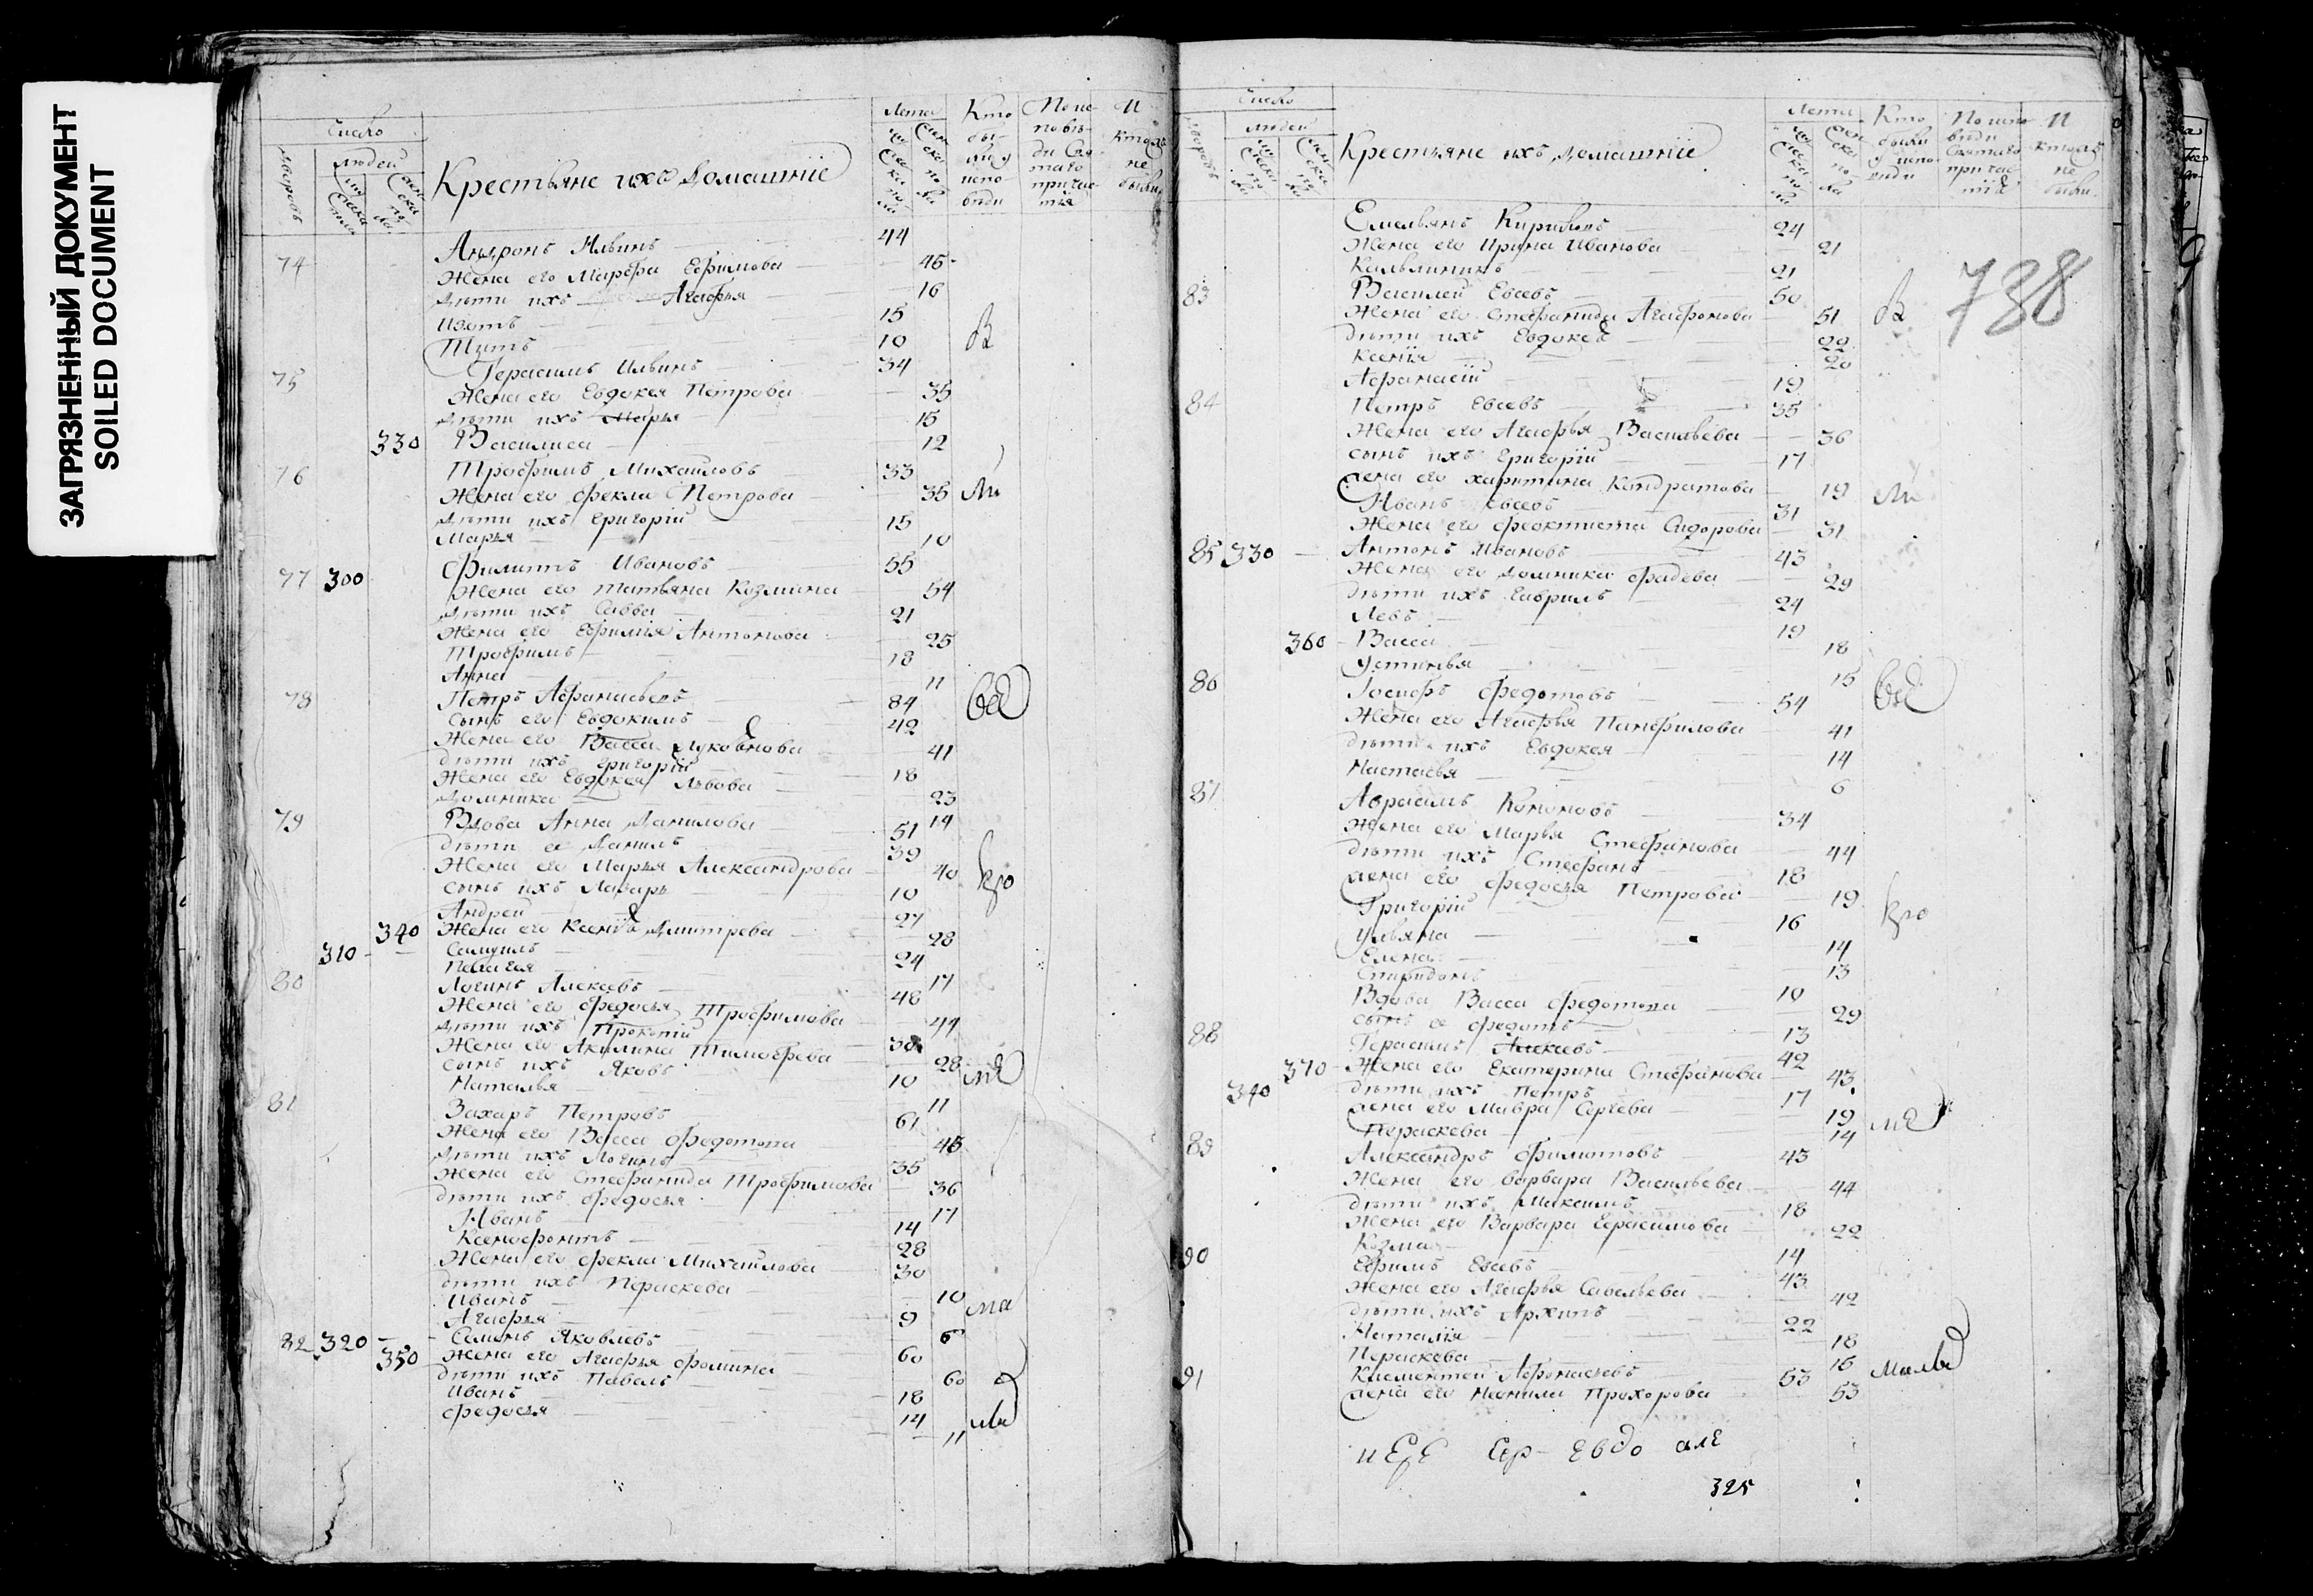 ЗАГРЯЗНЕННЫЙ ДОКУМЕНТ
SOILED DOCUMENT
Число
людей
Крестьяне ихъ домашнiе
Лета
Кто бы- ли у испо- веди
По ис- пове- ди Свя- таго причас- тiя
И ктожъ не былъ
74
Андронъ Ильинъ 44
Жена его Марфа Ефимова 45
дѣти ихъ Агафья 16
Изотъ 15
Титъ 10
75
Герасимъ Ильинъ 34
Жена его Евдокея Петрова 35
дѣти ихъ Марья 15
330 Василиса 12
76
Трофимъ Михаиловъ 33
Жена его Фекла Петрова 35
дѣти ихъ Григорiй 15
Марья 10
77 300
Филиппъ Ивановъ 55
Жена его Татьяна Козмина 54
дѣти ихъ Савва 21
Жена его Ефимiя Антонова 25
Трофимъ 18
Анна 11
78
Петръ Афанасьевъ 84
сынъ его Евдокимъ 42
Жена его Васса 41
дѣти ихъ Григорiй 18
Жена его Евдокея Львова 23
Домника 14
79
Вдова Анна Данилова 51
дѣти ее Данилъ 39
Жена его Марья Александрова 40
сынъ ихъ Лазарь 10
Андрей 27
340 Жена его Ксенiя Дмитрева 28
310 Самуилъ 24
Пелагея 17
80
Логинъ Алексеевъ 48
Жена его Федосья Трофимова 44
дѣти ихъ Прокопiй 30
Жена его Акилина Тимофеева 28
сынъ ихъ Яковъ 10
Наталья 11
81
Захаръ Петровъ 61
Жена его Васса Федотова 45
дѣти ихъ Логинъ 35
Жена его Стефанида Трофимова 36
дѣти ихъ Федосья 17
Иванъ 14
Ксенофонтъ 28
Жена его Фекла Михаилова 30
дѣти ихъ Параскева 10
Иванъ 9
Агафья 6
82 320
Семенъ Яковлевъ 60
350 Жена его Агафья Фомина 60
дѣти ихъ Павелъ 18
Иванъ 14
Федосья 11
Число
людей
Крестьяне ихъ домашнiе
Лета
Кто были у испо- веди
По испо- веди Святаго причас- тiя
И ктожъ не были
738
Емельянъ Кириловъ 24
Жена его Ирина Иванова 21
Кальлиникъ 21
83
Василей Евсевъ 50
Жена его Стефанида Агафонова 51
дѣти ихъ Евдокея 22
Ксенiя 20
Афанасiй 19
84
Петръ Евсевъ 35
Жена его Агафья Васильева 36
сынъ ихъ Григорiй 17
жена его Харитина Кондратова 19
Иванъ Евсевъ 31
Жена его Феоктиста Сидорова 31
85 330
Антонъ Ивановъ 43
Жена его Домника Фадева 29
дѣти ихъ Гаврилъ 24
Левъ 19
360 Васса 18
Устинья 15
86
Iосифъ Федотовъ 54
Жена его Агафья Панфилова 41
дѣти ихъ Евдокея 14
Настасья 6
87
Абрамъ Кононовъ 34
Жена его Марья Стефанова 44
дѣти ихъ Стефанъ 18
жена его Федосья Петрова 19
Григорiй 16
Ульяна 14
Елена 13
Спиридонъ 10
Вдова Васса Федотова 29
сынъ ее Федотъ 13
88
Герасимъ Алексеевъ 42
370 Жена его Екатерина Стефанова 43
340 дѣти ихъ Петръ 17
жена его Мавра Сергева 19
Пераскева 14
89
Александръ Филиповъ 43
Жена его Варвара Васильева 44
дѣти ихъ Максимъ 18
Жена его Варвара Герасимова 22
Козма 14
90
Ефимъ Евсевъ 43
Жена его Агафья Савельева 42
дѣти ихъ Архипъ 22
Наталiя 18
Пераскева 16
91
Климентей Афонасьевъ 53
жена его Ненила Прохорова 53
325